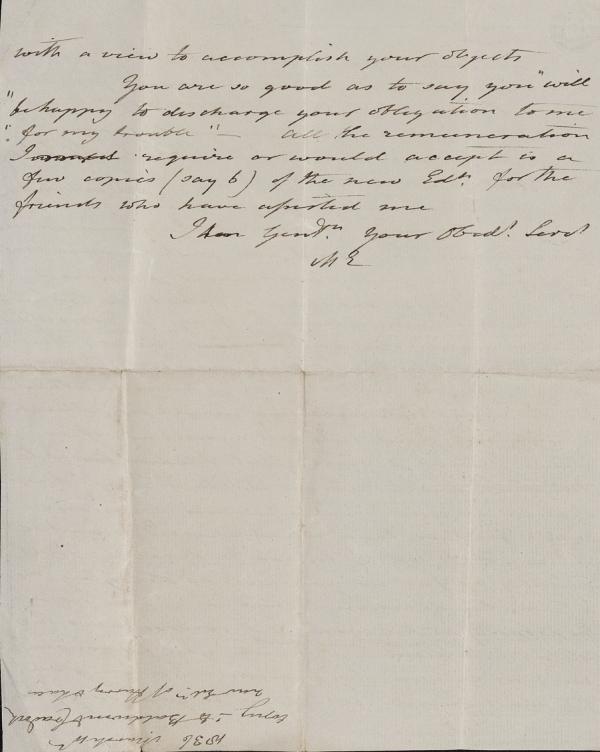 with a view to accomplish your objects
You are so good as to say you "will
"be happy to discharge your obligation to me
"for my trouble" — all the remuneration
I require or would accept is a
few copies (say 6) of the new Edn. for the
friends who have assisted me
I am Gentn. Your Obedt. Servt
ME
1836 March
Copy - to Baldwin & Cradock
new Edn. of